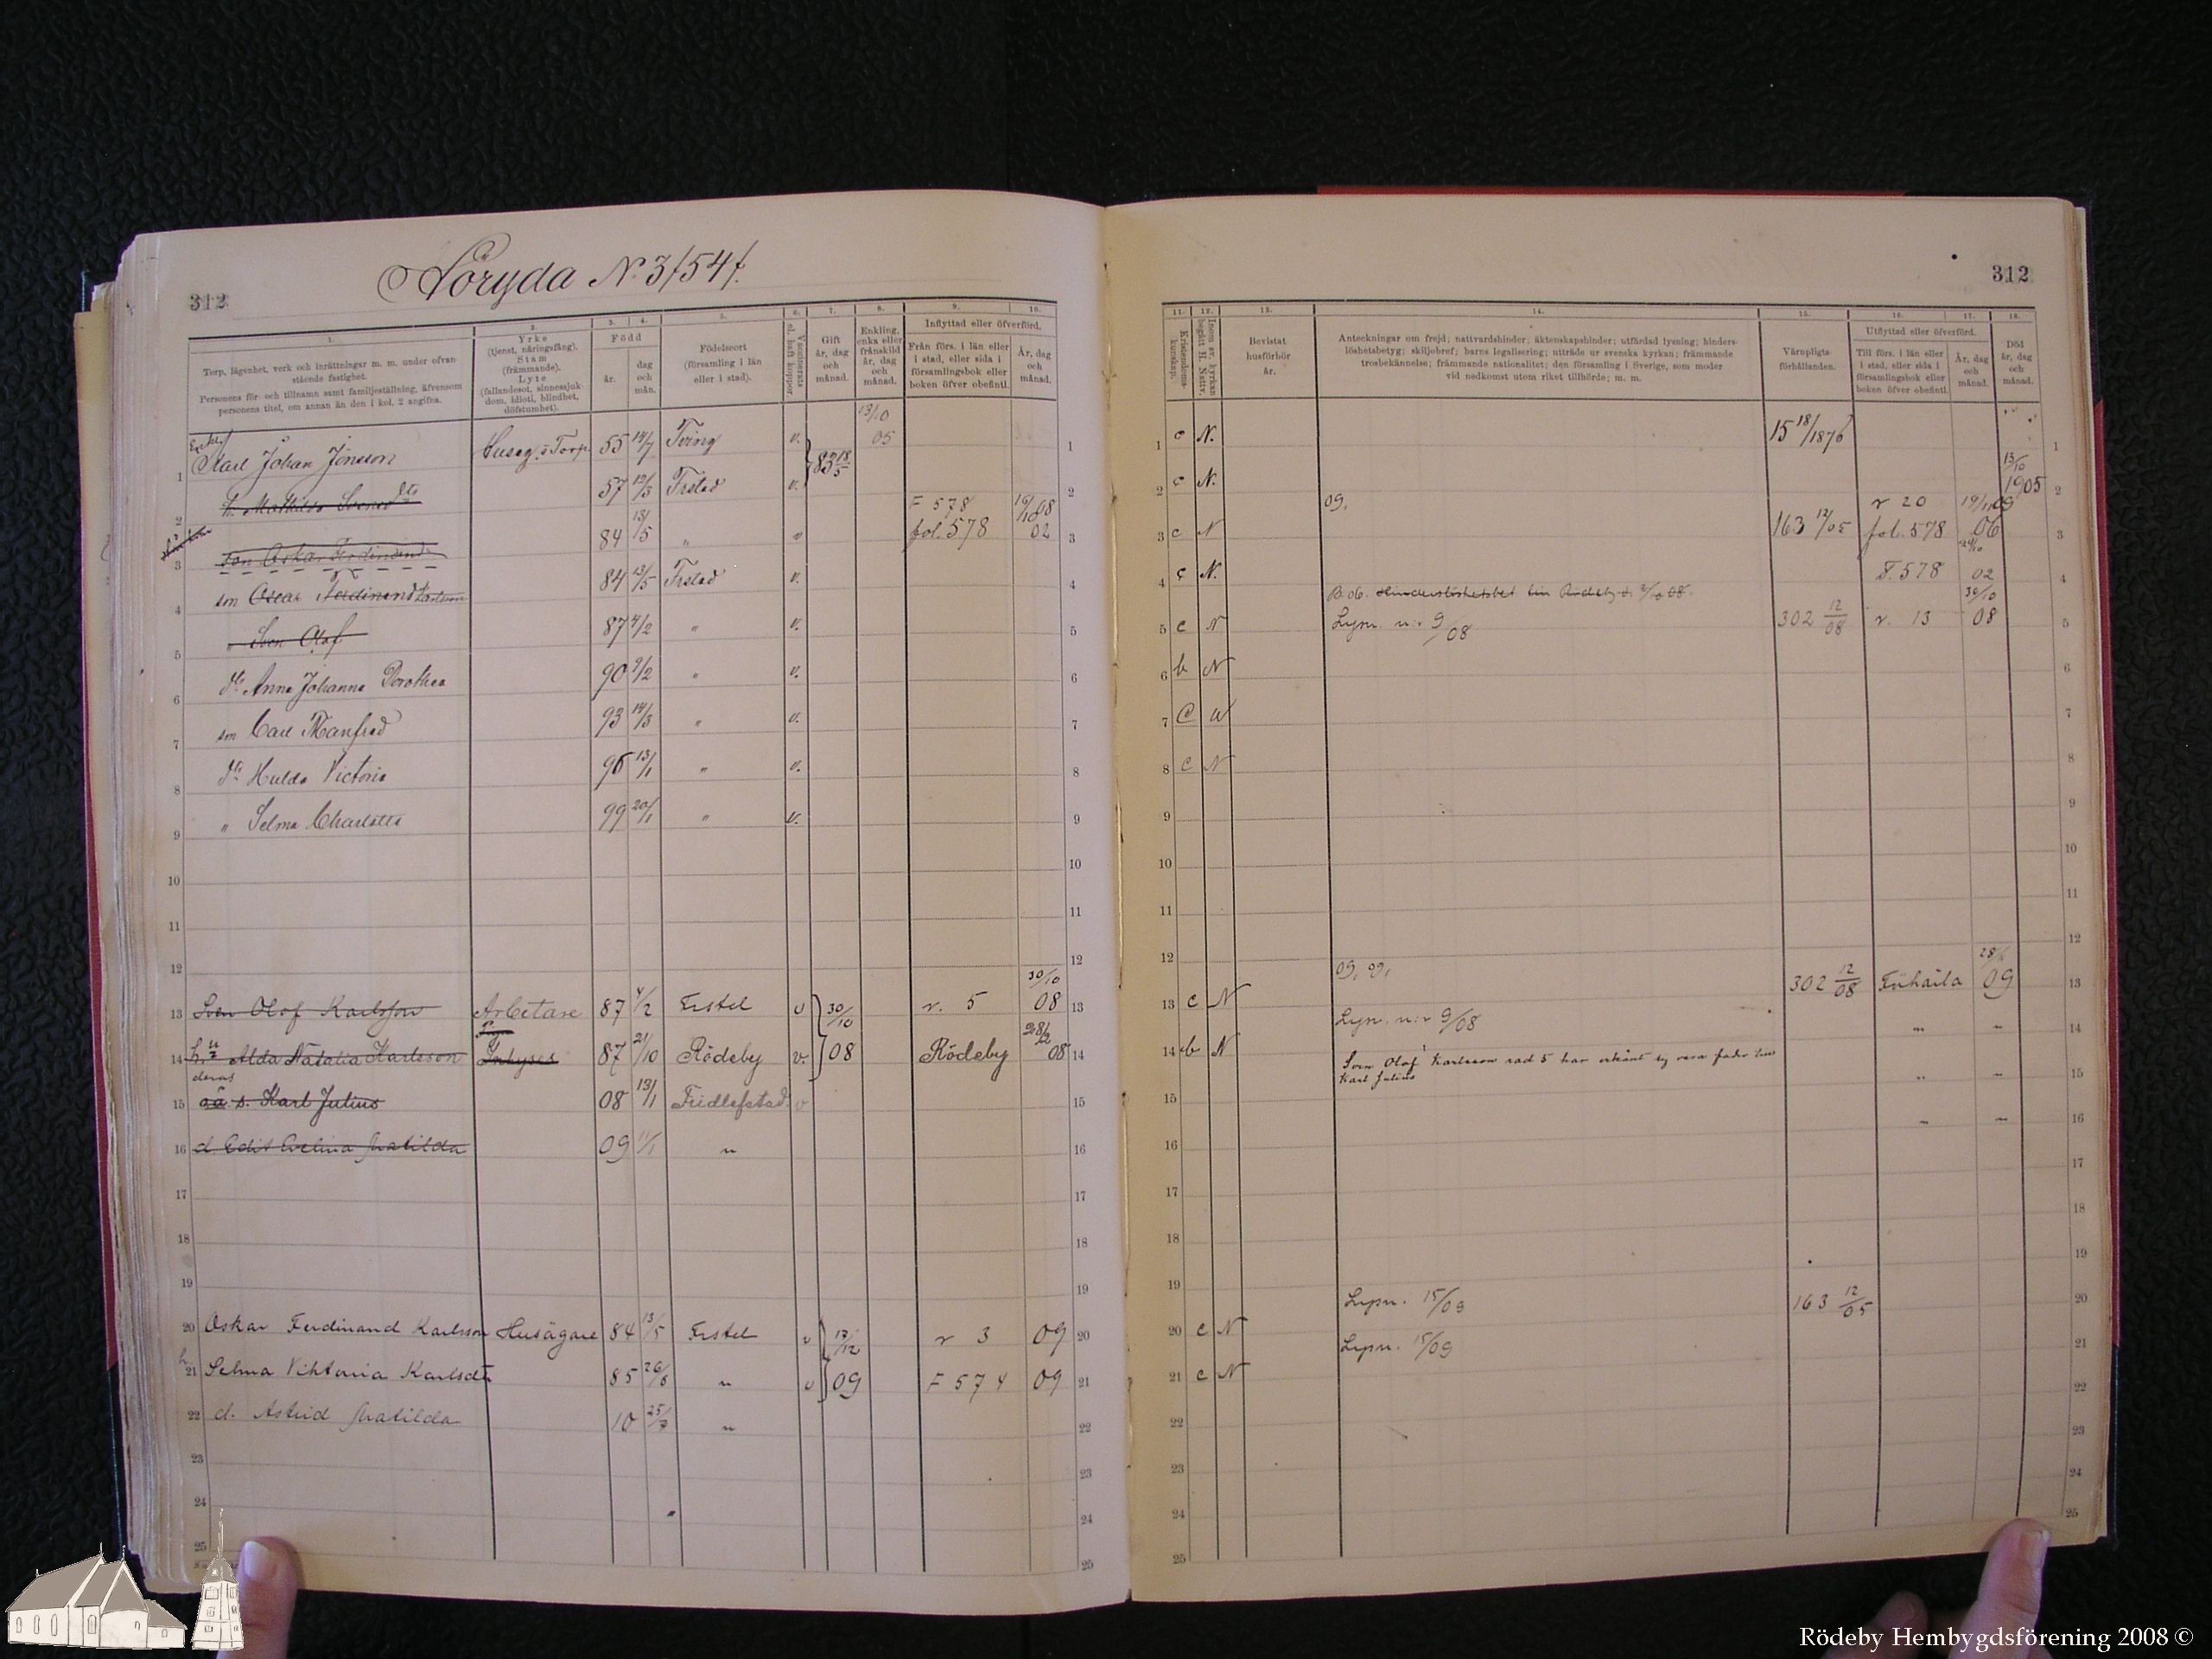 312
Nöryda № 3/54 f.
1. 2. 3. 4. 5. 6. 7. 8. 9. 10.
Torp, lägenhet, verk och inrättningar m. m. under ofvanstående fastighet.
Personens för- och tillnamn samt familjeställning, äfvensom personens titel, om annan än den i kol. 2 angifna.
Yrke (tjenst, näringsfång). Stam (främmande). Lyte (fallandesot, sinnessjukdom, idioti, blindhet, döfstumhet).
Född
år.
dag och mån.
Födelseort (församling i län eller i stad).
Vaccinerats el. haft koppor.
Gift år, dag och månad.
Enkling, enka eller frånskild år, dag och månad.
Inflyttad eller öfverförd.
Från förs. i län eller i stad, eller sida i församlingsbok eller boken öfver obefintl.
År, dag och månad.
1 Enkl. Karl Johan Jönsson Husäg. å Torp 55 14/7 Tving v. 83 18/5 13/10 05 1
2 h. Mathilda Svensdtr 57 12/3 Frstad v. 2
3 son Oskar Ferdinand 84 13/5 " v F 578 fol. 578 02 3
4 son Oscar Ferdinand Karlsson 84 13/5 Frstad v. 4
5 " Sven Olof 87 4/2 " v. 5
6 dr Anna Johanna Dorothea 90 9/2 " v. 6
7 son Carl Manfred 93 14/3 " v. 7
8 dr Hulda Victoria 96 13/1 " v. 8
9 " Selma Charlotta 99 20/1 " v. 9
10 10
11 11
12 12
13 Sven Olof Karlsson Arbetare 87 4/2 Frstel v 30/10 r. 5 30/10 08 13
14 h. u Alda Natalia Karlsson Inhyses 87 21/10 Rödeby v. 08 Rödeby 08 14
deras
15 s. Karl Julius 08 13/1 Fridlefstad v 15
16 d. Edit Evelina Matilda 09 11/1 " 16
17 17
18 18
19 19
20 Oskar Ferdinand Karlsson Husägare 84 13/5 Frstel v 17/12 r 3 09 20
21 h. Selma Viktoria Karlsdtr 85 26/6 " v 09 F 574 09 21
22 d. Astrid Matilda 10 25/7 " 22
23 23
24 24
25 25
312
11. 12. 13. 14. 15. 16. 17. 18.
Kristendomskunskap.
Inom sv. kyrkan begått H. Nattv.
Bevistat husförhör år.
Anteckningar om frejd; nattvardshinder; äktenskapshinder; utfärdad lysning; hinderslöshetsbetyg; skiljobref; barns legalisering; utträde ur svenska kyrkan; främmande trosbekännelse; främmande nationalitet; den församling i Sverige, som moder vid nedkomst utom riket tillhörde; m. m.
Värnpligtsförhållanden.
Utflyttad eller öfverförd.
Till förs. i län eller i stad, eller sida i församlingsbok eller boken öfver obefintl.
År, dag och månad.
Död år, dag och månad.
1 c N. 15 18/1876 1
2 c N. 13/10 1905 2
3 c N 09. 163 12/05 r 20 fol. 578 06 3
4 c N. F. 578 02 4
B. 06. Hinderslöshetsbet till Rödeby d. 2/10 08.
5 c N Lysn. n:r 9/08 302 12/08 r. 13 30/10 08 5
6 b N 6
7 C N 7
8 C N 8
9 9
10 10
11 11
12 12
13 c N 09, 09, 302 12/08 09 13
14 b N Lysn. n:r 9/08 " " 14
Sven Olof Karlsson rad 5 har erkänt sig vara fader till Karl Julius
15 " " 15
16 " " 16
17 17
18 18
19 19
20 c N Lysn. 15/09 163 12/05 20
21 c N Lysn. 15/09 21
22 22
23 23
24 24
25 25
Rödeby Hembygdsförening 2008 ©